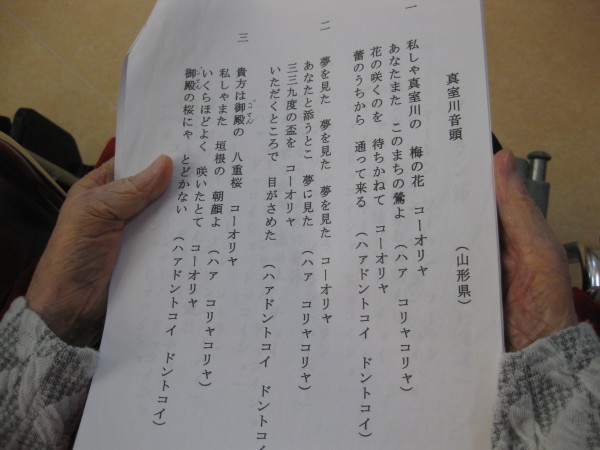 真室川音頭 （山形県）
一
私しゃ真室川の 梅の花 コーオリャ
あなたまた このまちの鶯よ （ハァ コリャコリャ）
花の咲くのを 待ちかねて コーオリャ
蕾のうちから 通って来る （ハァドントコイ ドントコイ）
二
夢を見た 夢を見た 夢を見た コーオリャ
あなたと添うとこ 夢に見た （ハァ コリャコリャ）
三三九度の盃を コーオリャ
いただくところで 目がさめた （ハァドントコイ ドントコイ
三
貴方は御殿の 八重桜 コーオリャ
ごてん
私しゃまた 垣根の 朝顔よ （ハァ コリャコリャ）
いくらほどよく 咲いたとて コーオリャ
御殿の桜にゃ とどかない （ハァドントコイ ドントコイ）
ごてん